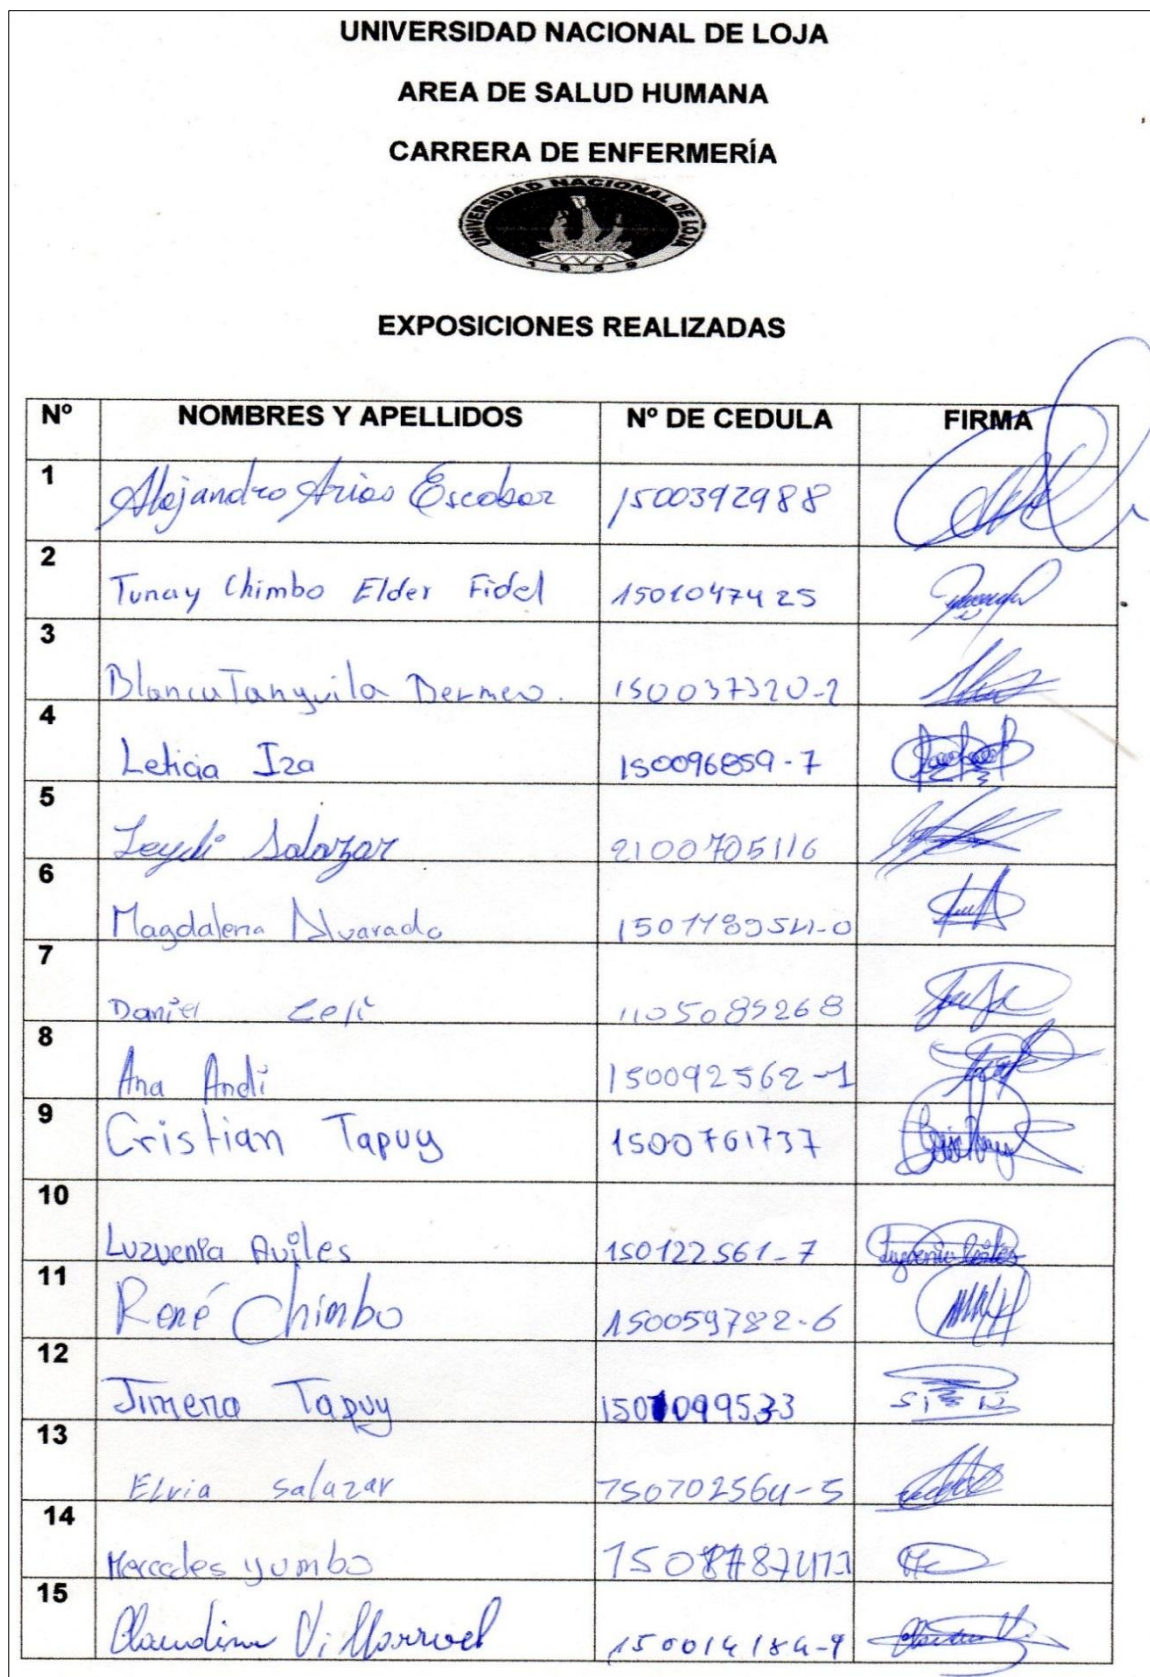 UNIVERSIDAD NACIONAL DE LOJA
AREA DE SALUD HUMANA
CARRERA DE ENFERMERÍA
UNIVERSIDAD NACIONAL DE LOJA
1859
EXPOSICIONES REALIZADAS
Nº NOMBRES Y APELLIDOS Nº DE CEDULA FIRMA
1 Alejandro Arias Escobar 1500392988
2 Tunay Chimbo Elder Fidel 1501047425
3 Blanca Tanguila Bermeo. 150037320-2
4 Leticia Iza 150096859-7
5 Leydi Salazar 2100705116
6 Magdalena Alvarado
7 Daniel Celi 1105085268
8 Ana Andi 150092562-1
9 Cristian Tapuy 1500761737
10 Luzvenia Aviles 150122561-7
11 René Chimbo 150059782-6
12 Jimena Tapuy 1501099533
13 Elvia Salazar
14 Mercedes yumbo
15 Claudina Villarroel 150014184-9